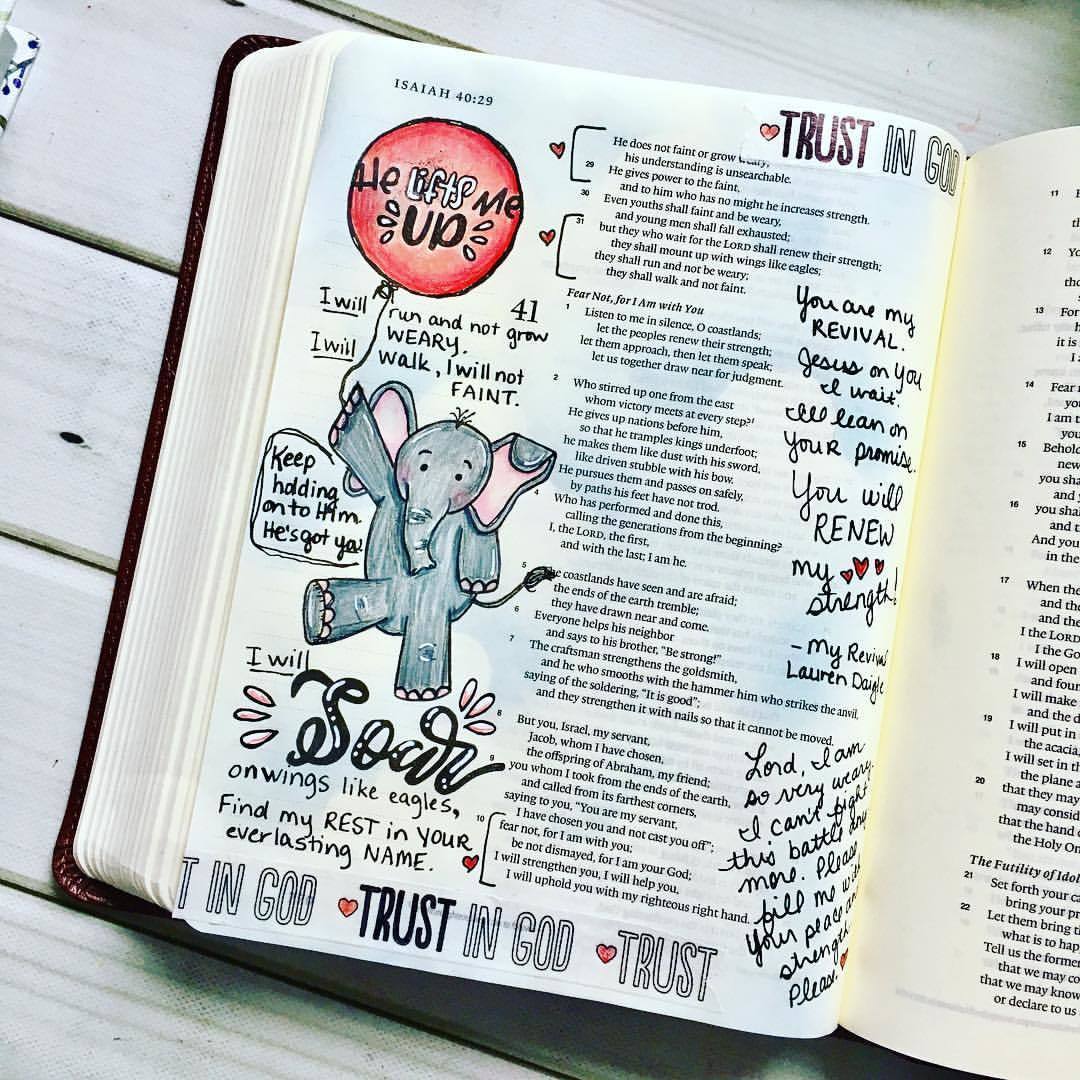 ISAIAH 40:29
TRUST IN GOD
He Lifts Me
UP
He does not faint or grow weary,
his understanding is unsearchable.
29 He gives power to the faint,
and to him who has no might he increases strength.
30 Even youths shall faint and be weary,
and young men shall fall exhausted;
31 but they who wait for the LORD shall renew their strength;
they shall mount up with wings like eagles;
they shall run and not be weary;
they shall walk and not faint.
I will run and not grow
WEARY.
I will walk, I will not
FAINT.
Keep
holding
onto Him.
He's got you
I will
Soar
on wings like eagles,
Find my REST in YOUR
everlasting NAME.
41
Fear Not, for I Am with You
1 Listen to me in silence, O coastlands;
let the peoples renew their strength;
let them approach, then let them speak;
let us together draw near for judgment.
2 Who stirred up one from the east
whom victory meets at every step?
He gives up nations before him,
so that he tramples kings underfoot;
he makes them like dust with his sword,
like driven stubble with his bow.
He pursues them and passes on safely,
by paths his feet have not trod.
4 Who has performed and done this,
calling the generations from the beginning?
I, the LORD, the first,
and with the last; I am he.
5 The coastlands have seen and are afraid;
the ends of the earth tremble;
they have drawn near and come.
6 Everyone helps his neighbor
and says to his brother, "Be strong!"
7 The craftsman strengthens the goldsmith,
and he who smooths with the hammer him who strikes the anvil,
saying of the soldering, "It is good";
and they strengthen it with nails so that it cannot be moved.
8 But you, Israel, my servant,
Jacob, whom I have chosen,
the offspring of Abraham, my friend;
9 you whom I took from the ends of the earth,
and called from its farthest corners,
saying to you, "You are my servant,
I have chosen you and not cast you off";
10 fear not, for I am with you;
be not dismayed, for I am your God;
I will strengthen you, I will help you,
I will uphold you with my righteous right hand.
You are my
REVIVAL.
Jesus on You
I wait.
I'll lean on
YOUR promise.
You will
RENEW
my
strength!
- My Revival
Lauren Daigle
Lord, I am
so very weary.
I can't fight
this battle any
more. Please
fill me with
your peace and
strength
Please.
T IN GOD TRUST IN GOD TRUST
11
12 Yo
tho
13 For
it is
I
14 Fear
yo
I am t
15 Behold
new
you sha
and
16 you shal
and t
And you
in the
17 When the
and the
I the LORD
I the Go
18 I will open
and foun
I will make
and the d
19 I will put in
the acacia
I will set in th
the plane a
20 that they may
may consid
that the hand
the Holy On
The Futility of Idol
21 Set forth your ca
bring your pr
22 Let them bring th
what is to hap
Tell us the former
that we may co
that we may know
or declare to us